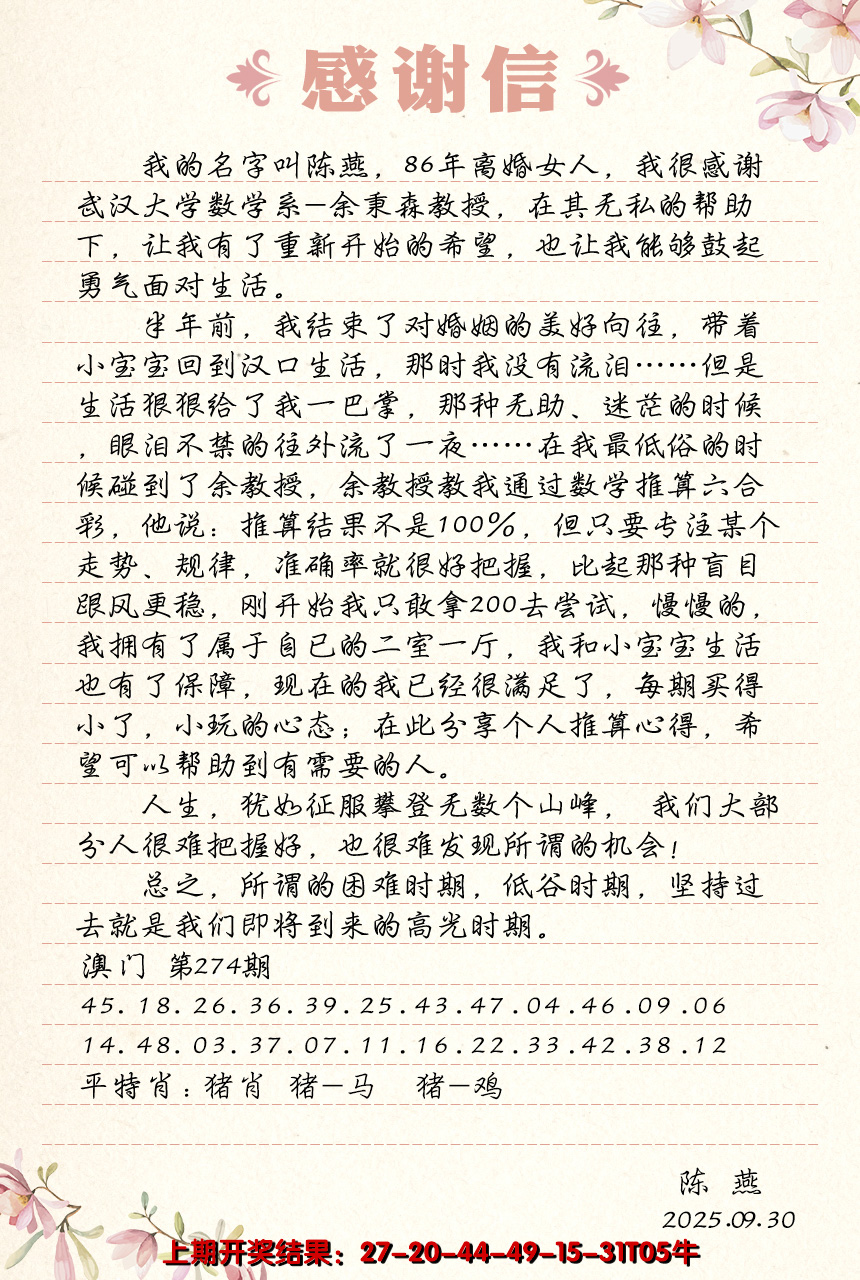 感谢信
我的名字叫陈燕，86年离婚女人，我很感谢
武汉大学数学系—余秉森教授，在其无私的帮助
下，让我有了重新开始的希望，也让我能够鼓起
勇气面对生活。
半年前，我结束了对婚姻的美好向往，带着
小宝宝回到汉口生活，那时我没有流泪……但是
生活狠狠给了我一巴掌，那种无助、迷茫的时候
，眼泪不禁的往外流了一夜……在我最低俗的时
候碰到了余教授，余教授教我通过数学推算六合
彩，他说：推算结果不是100%，但只要专注某个
走势、规律，准确率就很好把握，比起那种盲目
跟风更稳，刚开始我只敢拿200去尝试，慢慢的，
我拥有了属于自己的二室一厅，我和小宝宝生活
也有了保障，现在的我已经很满足了，每期买得
小了，小玩的心态；在此分享个人推算心得，希
望可以帮助到有需要的人。
人生，犹如征服攀登无数个山峰， 我们大部
分人很难把握好，也很难发现所谓的机会！
总之，所谓的困难时期，低谷时期，坚持过
去就是我们即将到来的高光时期。
澳门 第274期
45.18.26.36.39.25.43.47.04.46.09.06
14.48.03.37.07.11.16.22.33.42.38.12
平特肖：猪肖 猪—马 猪—鸡
陈 燕
2025.09.30
上期开奖结果：27-20-44-49-15-31T05牛